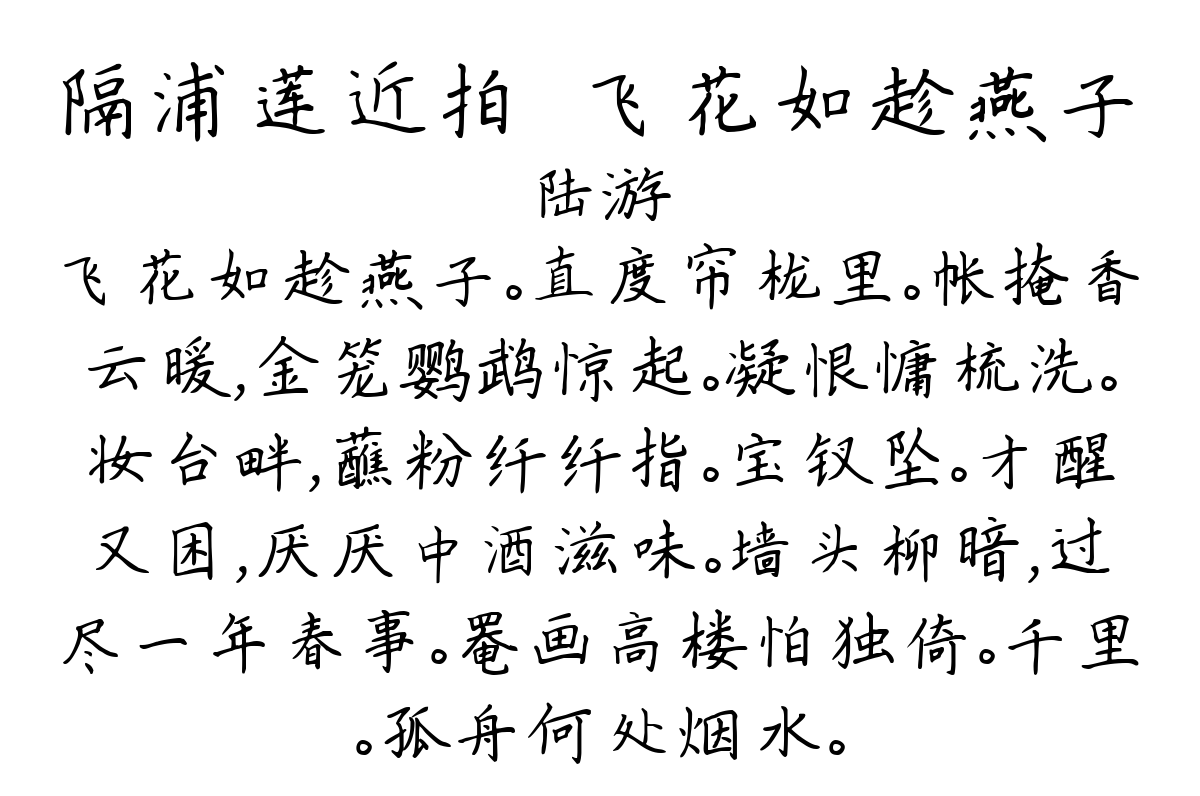 隔浦莲近拍 飞花如趁燕子
陆游
飞花如趁燕子。直度帘栊里。帐掩香
云暖,金笼鹦鹉惊起。凝恨慵梳洗。
妆台畔,蘸粉纤纤指。宝钗坠。才醒
又困,厌厌中酒滋味。墙头柳暗,过
尽一年春事。罨画高楼怕独倚。千里
。孤舟何处烟水。